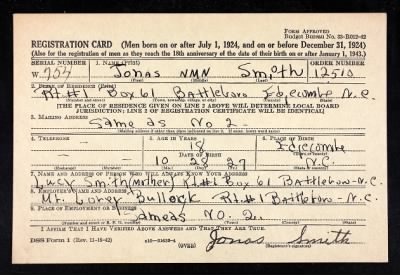 FORM APPROVED
Budget Bureau No. 33-R012-42
REGISTRATION CARD (Men born on or after July 1, 1924, and on or before December 31, 1924)
(Also for the registration of men as they reach the 18th anniversary of the date of their birth on or after January 1, 1943.)
SERIAL NUMBER 1. NAME (Print) ORDER NUMBER
W. 757 Jonas NMN Smith 12510
(First) (Middle) (Last)
2. PLACE OF RESIDENCE (Print)
Rt#1 Box 61 Battleboro Edgecombe N.C.
(Number and street) (Town, township, village, or city) (County) (State)
[THE PLACE OF RESIDENCE GIVEN ON LINE 2 ABOVE WILL DETERMINE LOCAL BOARD
JURISDICTION; LINE 2 OF REGISTRATION CERTIFICATE WILL BE IDENTICAL]
3. MAILING ADDRESS
Same as No 2
[Mailing address if other than place indicated on line 2. If same, insert word same]
4. TELEPHONE 5. AGE IN YEARS 6. PLACE OF BIRTH
18 Edgecombe
DATE OF BIRTH
10 28 27 N.C.
(Exchange) (Number) (Mo.) (Day) (Yr.) (State or country)
7. NAME AND ADDRESS OF PERSON WHO WILL ALWAYS KNOW YOUR ADDRESS
Lucy Smith (mother) Rt#1 Box 61 Battleboro-N.C.
8. EMPLOYER'S NAME AND ADDRESS
Mr. Bullock Rt.#1 Battleboro-N.C.
9. PLACE OF EMPLOYMENT OR BUSINESS
Same as NO. 2
(Number and street or R. F. D. number) (Town) (County) (State)
I AFFIRM THAT I HAVE VERIFIED ABOVE ANSWERS AND THAT THEY ARE TRUE.
DSS Form 1 (Rev. 11-16-42) (OVER) Jonas Smith
(Registrant's signature)